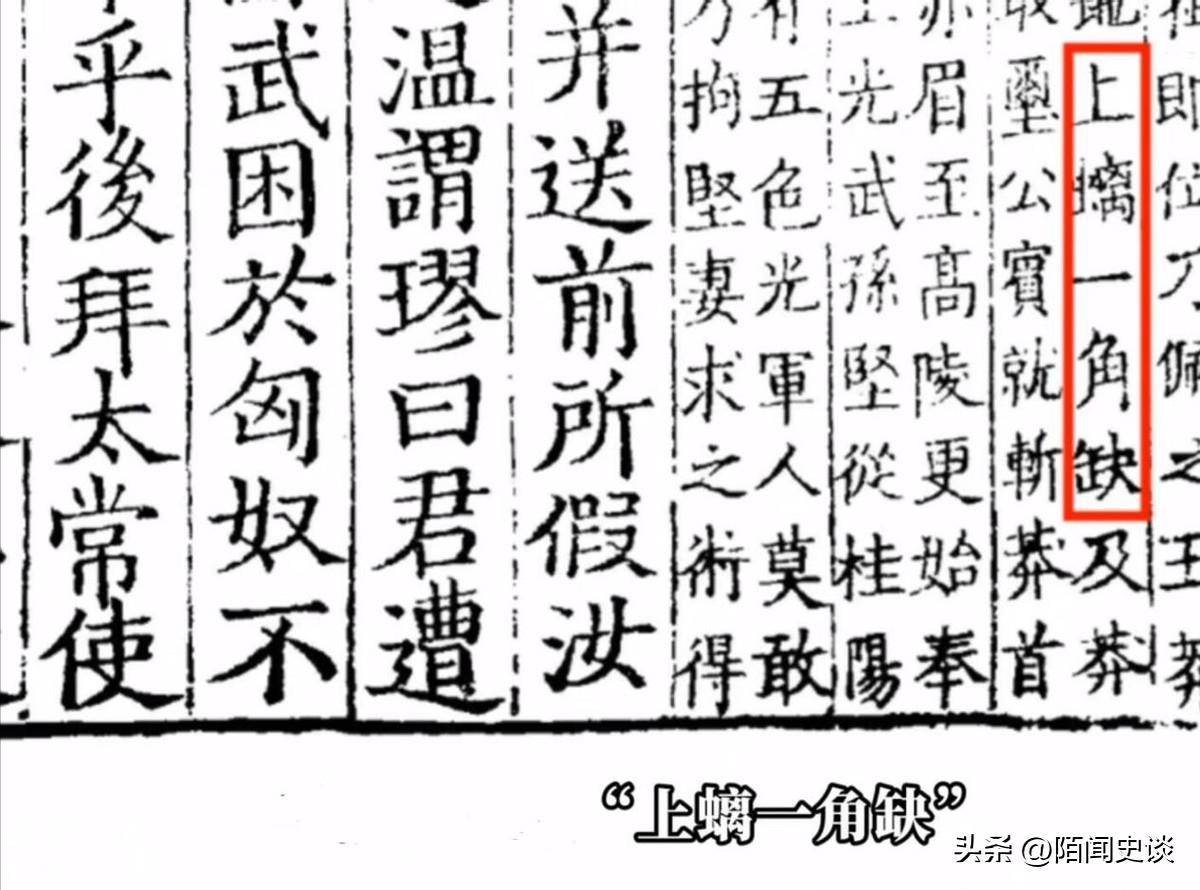 即位乃佩之王莽
地上螭一角缺及莽
取璽公賓就斬莽首
赤眉至高陵更始奉
上光武孫堅從桂陽
有五色光軍人莫敢
乃拘堅妻求之術得
并送前所假汝
溫謂璆曰君遭
武困於匈奴不
乎後拜太常使
“上螭一角缺”
头条 @陌闻史谈